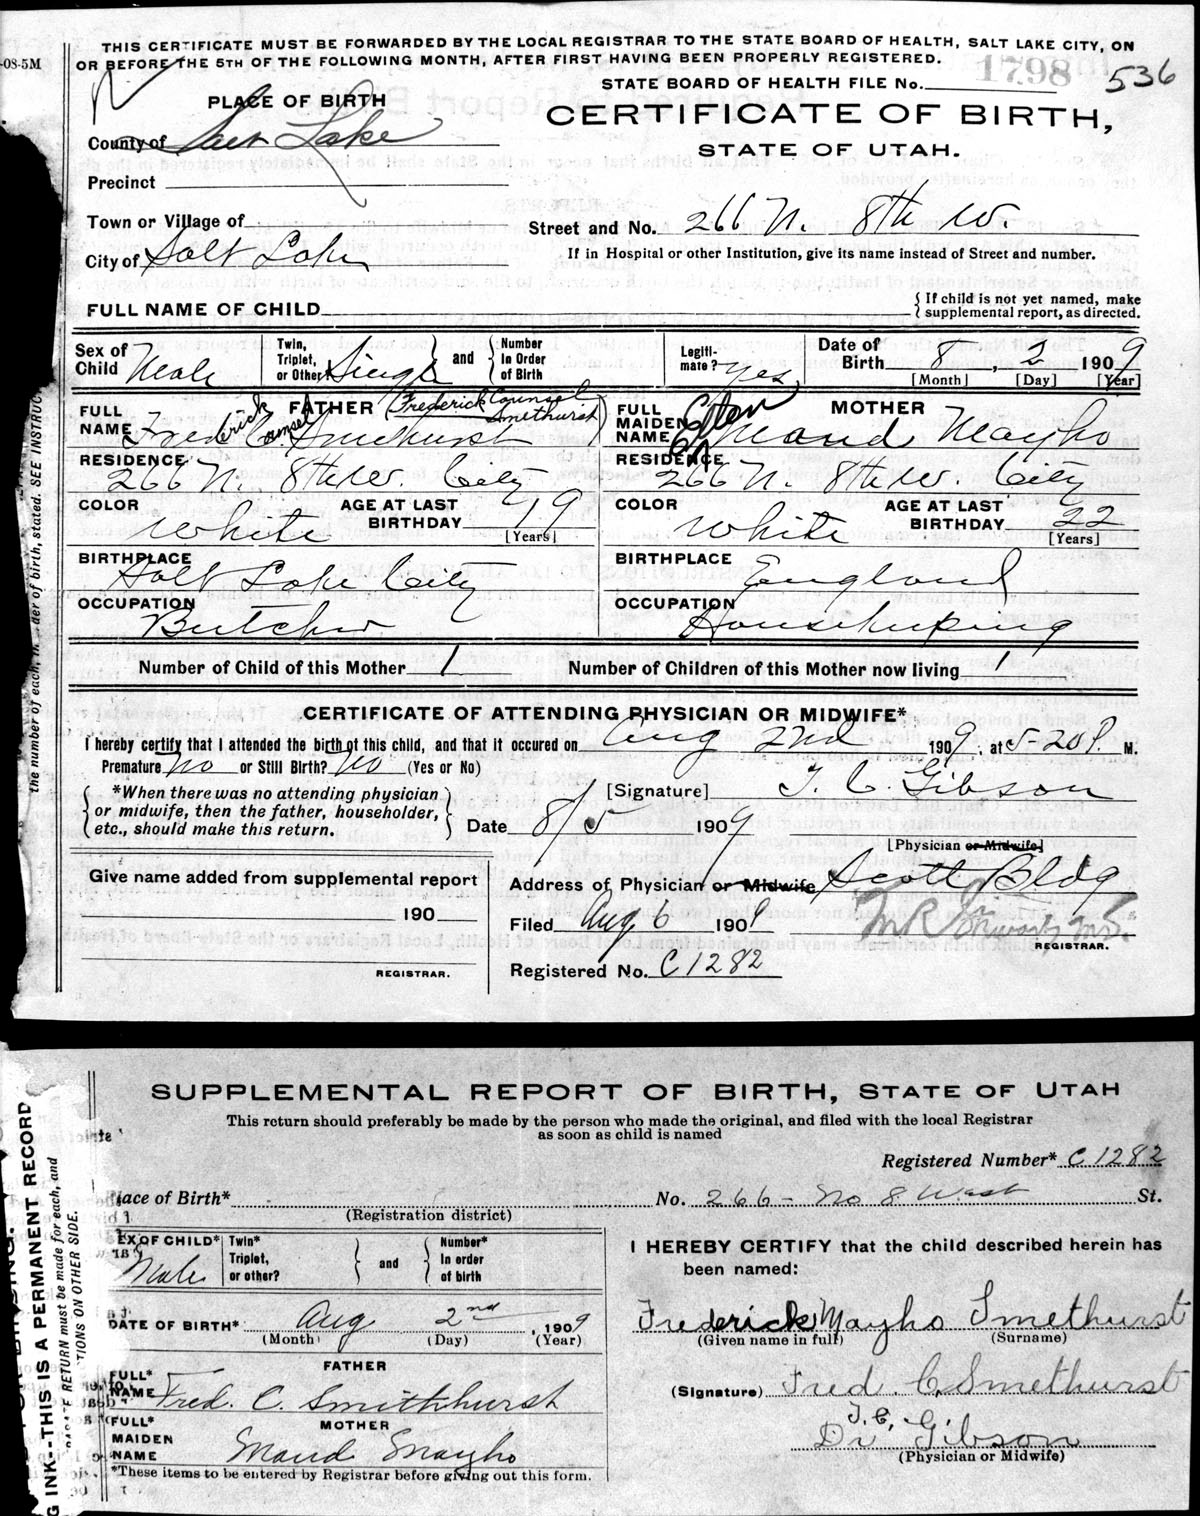 THIS CERTIFICATE MUST BE FORWARDED BY THE LOCAL REGISTRAR TO THE STATE BOARD OF HEALTH, SALT LAKE CITY, ON
-08-5M OR BEFORE THE 5TH OF THE FOLLOWING MONTH, AFTER FIRST HAVING BEEN PROPERLY REGISTERED.
1798 536
STATE BOARD OF HEALTH FILE No.
PLACE OF BIRTH
CERTIFICATE OF BIRTH,
County of Salt Lake
STATE OF UTAH.
Precinct
Town or Village of
Street and No. 266 N. 8th W.
City of Salt Lake
If in Hospital or other Institution, give its name instead of Street and number.
FULL NAME OF CHILD
If child is not yet named, make supplemental report, as directed.
Sex of Child Male
Twin, Triplet, or Other Single and Number In Order of Birth
Legiti-mate? yes
Date of Birth 8, 2 1909
[Month] [Day] [Year]
FATHER (Frederick Counsel Smethurst)
FULL NAME Frederick Counsel Smethurst
MOTHER
FULL MAIDEN NAME Ellen Maud Mayho
RESIDENCE 266 N. 8th W. City
RESIDENCE 266 N. 8th W. City
COLOR White AGE AT LAST BIRTHDAY 19 [Years]
COLOR White AGE AT LAST BIRTHDAY 22 [Years]
BIRTHPLACE Salt Lake City
BIRTHPLACE England
OCCUPATION Butcher
OCCUPATION Housekeeping
Number of Child of this Mother 1 Number of Children of this Mother now living 1
CERTIFICATE OF ATTENDING PHYSICIAN OR MIDWIFE*
I hereby certify that I attended the birth of this child, and that it occured on Aug 2nd 1909, at 5-20 P. M.
Premature No or Still Birth? No (Yes or No)
*When there was no attending physician or midwife, then the father, householder, etc., should make this return.
[Signature] T. C. Gibson
Date 8/5 1909
[Physician or Midwife]
Give name added from supplemental report
190
REGISTRAR.
Address of Physician or Midwife Scott Bldg
Filed Aug 6 1909
REGISTRAR.
Registered No. C1282
the number of each, in der of birth, stated. SEE INSTRUC
SUPPLEMENTAL REPORT OF BIRTH, STATE OF UTAH
This return should preferably be made by the person who made the original, and filed with the local Registrar
as soon as child is named
Registered Number* C1282
lace of Birth* No. 266 - No 8 West St.
(Registration district)
EX OF CHILD* Male
Twin* Triplet, or other? and Number* In order of birth
I HEREBY CERTIFY that the child described herein has
been named:
DATE OF BIRTH* Aug 2nd, 1909
(Month) (Day) (Year)
Frederick Mayho Smethurst
(Given name in full) (Surname)
FATHER
FULL* NAME Fred. C. Smithhurst
(Signature) Fred. C. Smethurst
MOTHER
FULL* MAIDEN NAME Maud Mayho
Dr. T. C. Gibson
(Physician or Midwife)
*These items to be entered by Registrar before giving out this form.
G INK--THIS IS A PERMANENT RECORD
RETURN must be made for each, and
TIONS ON OTHER SIDE.